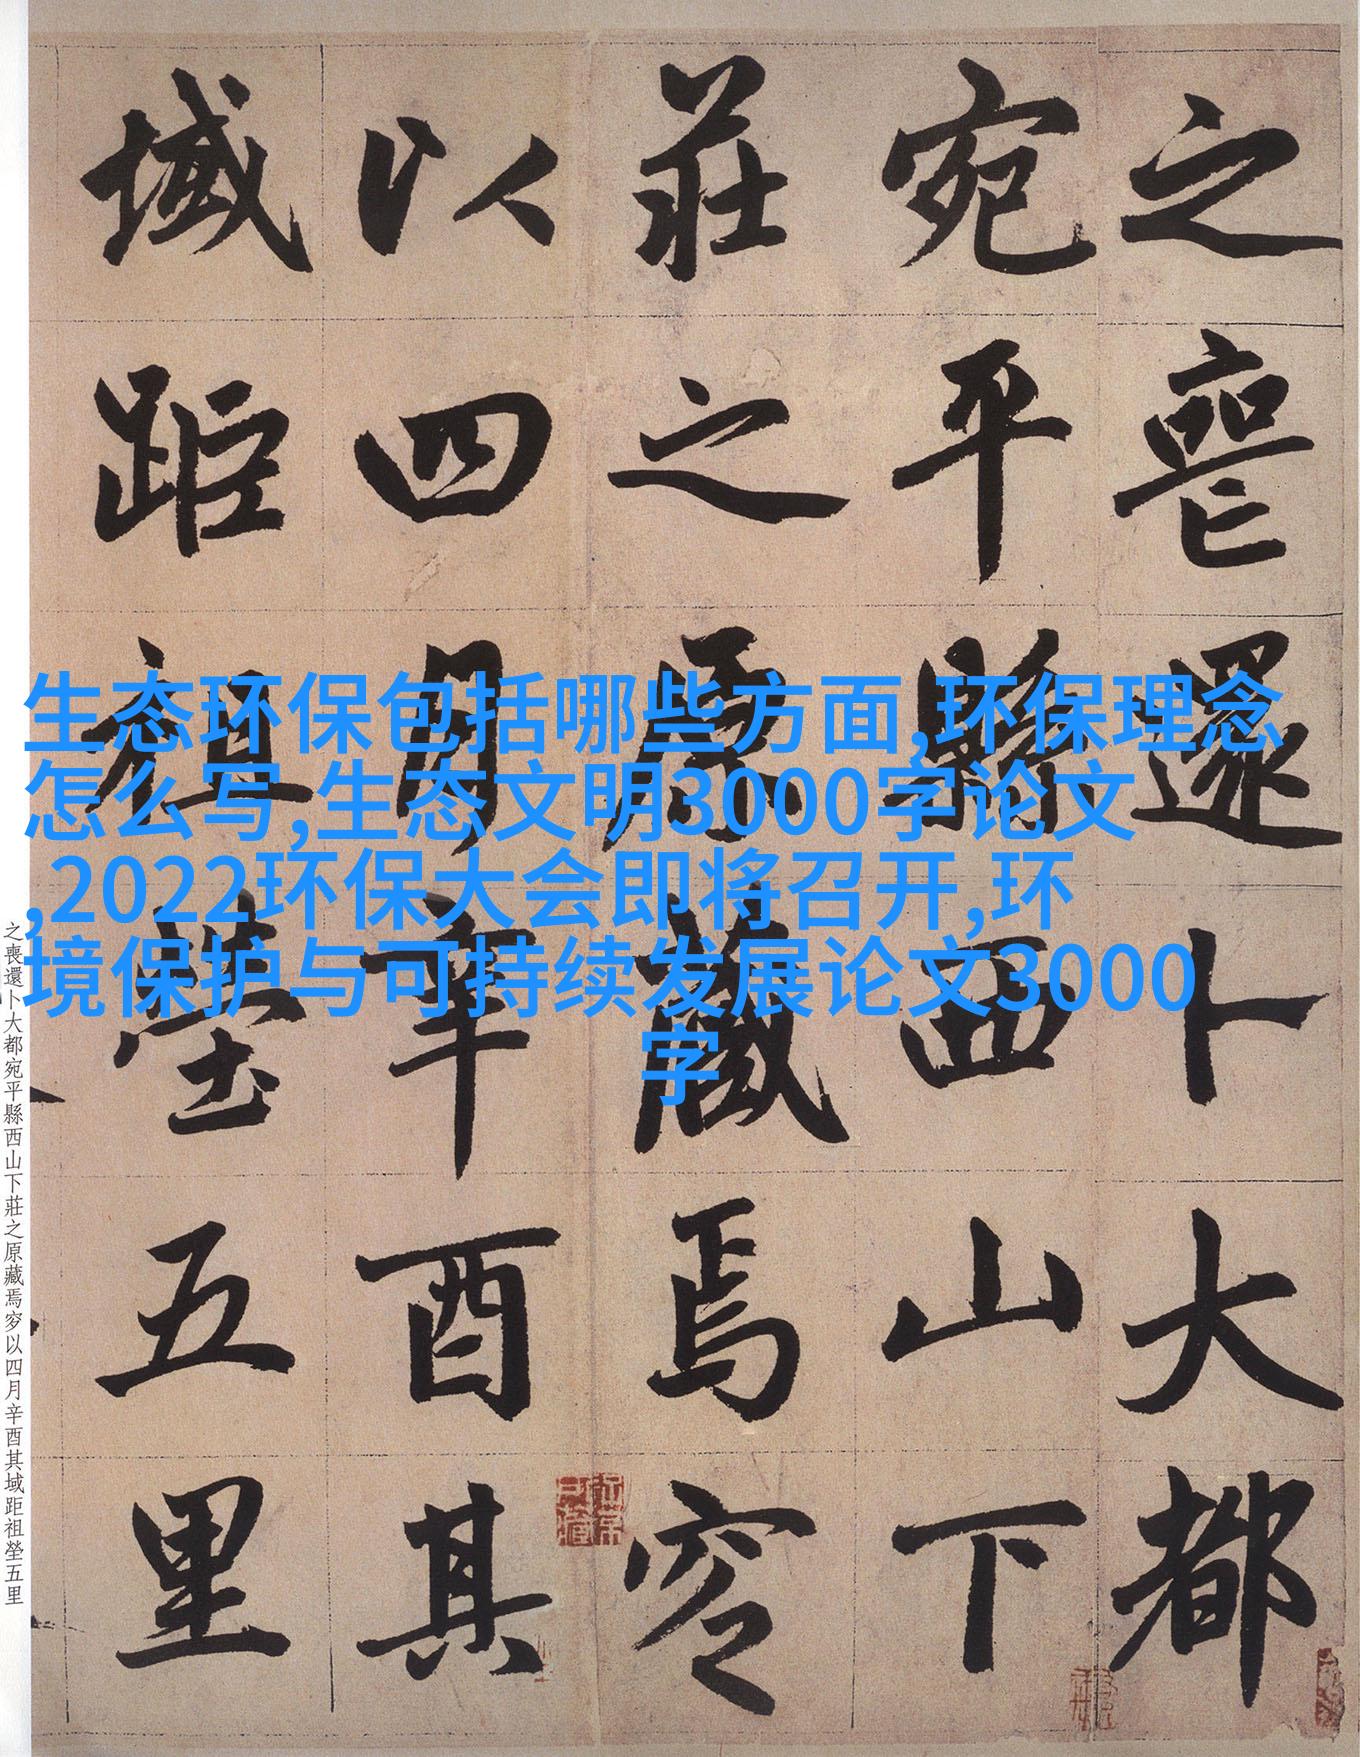 之喪還卜大都
宛平縣西山下
莊之原藏焉穸
以四月辛酉其
域距祖塋五里
生态环保包括哪些方面,环保理念
怎么写,生态文明3000字论文
,2022环保大会即将召开,环
境保护与可持续发展论文3000
字
之喪還卜大都宛平縣西山下莊之原藏焉穸以四月辛酉其域距祖塋五里